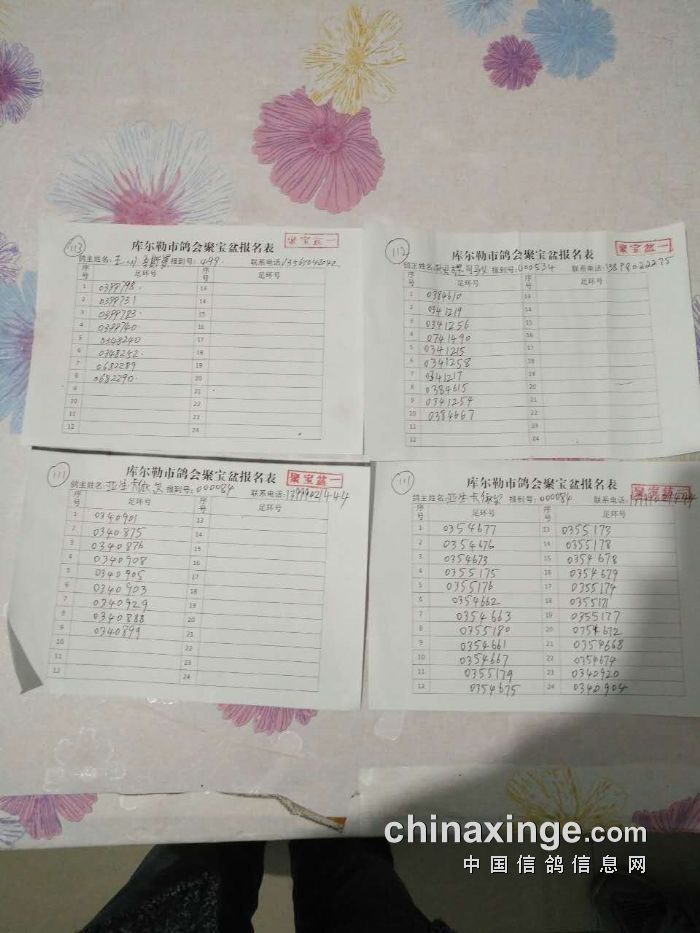 113
库尔勒市鸽会聚宝盆报名表
聚宝盆一
鸽主姓名: 报到号: 499 联系电话:
序号 足环号 序号 足环号
1 0399798. 13
2 0399731 14
3 0399783. 15
4 0399740 16
5 0348240 17
6 0348252. 18
7 0682289 19
8 0682290. 20
9 21
10 22
11 23
12 24
112
库尔勒市鸽会聚宝盆报名表
聚宝盆一
鸽主姓名: 报到号: 000534 联系电话: 13898022275
序号 足环号 序号 足环号
1 0384610 13
2 0341219 14
3 0341256 15
4 0741490 16
5 0341215 17
6 0341258 18
7 0341217 19
8 0384615 20
9 0341254 21
10 0384667 22
11 23
12 24
111
库尔勒市鸽会聚宝盆报名表
聚宝盆一
鸽主姓名: 亚生卡依 报到号: 000084 联系电话: 13999021444
序号 足环号 序号 足环号
1 0340901 13
2 0340875 14
3 0340876 15
4 0340908 16
5 0340905 17
6 0340903 18
7 0340929 19
8 0340888 20
9 0340899 21
10 22
11 23
12 24
111
库尔勒市鸽会聚宝盆报名表
聚宝盆一
鸽主姓名: 亚生卡依 报到号: 000084 联系电话:
序号 足环号 序号 足环号
1 0354677 13 0355173
2 0354676 14 0355178
3 0354673 15 0354678
4 0355175 16 0354679
5 0355176 17 0355174
6 0354662 18 0355171
7 0354663 19 0355177
8 0355180 20 0354672
9 0354661 21 0354668
10 0354667 22 0354674
11 0355179 23 0340920
12 0354675 24 0340904
chinaxinge.com
中国信鸽信息网